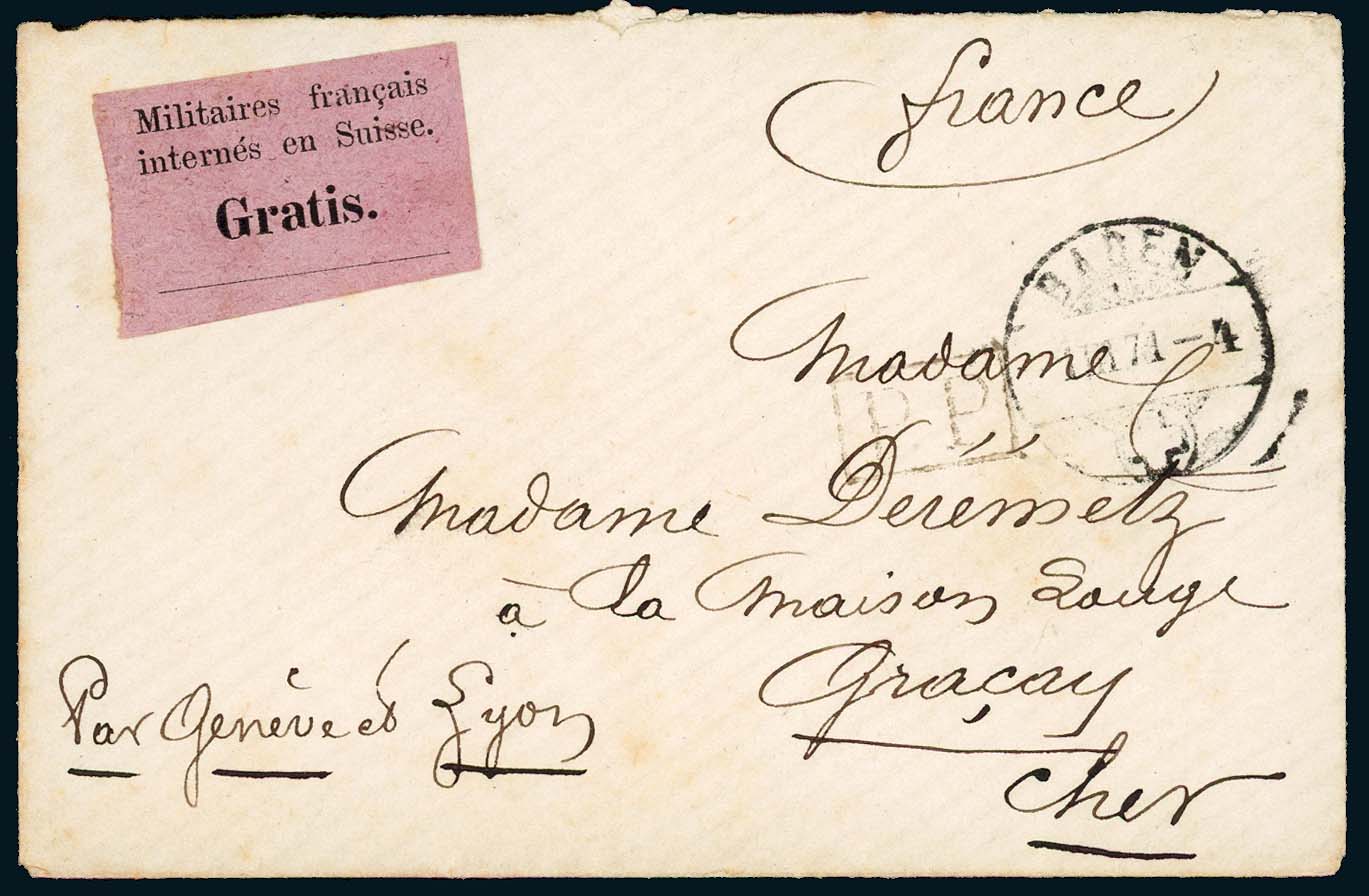 Militaires français
internés en Suisse.
Gratis.
france
BADEN
71-4
Madame
P.P
Madame Derémetz
à la Maison Rouge
Graçay
Cher
Par Genève et Lyon